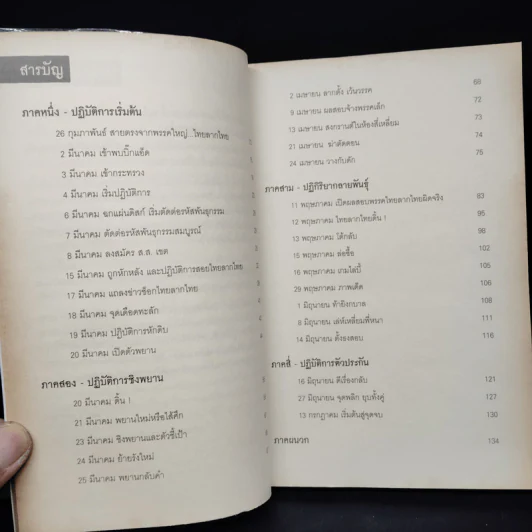 สารบัญ
ภาคหนึ่ง - ปฏิบัติการเริ่มต้น
26 กุมภาพันธ์ สายตรงจากพรรคใหญ่...ไทยลากไทย
2 มีนาคม เข้าพบบิ๊กแอ๊ด
3 มีนาคม เข้ากระทรวง
4 มีนาคม เริ่มปฏิบัติการ
6 มีนาคม ฉกแผ่นดิสก์ เริ่มตัดต่อรหัสพันธุกรรม
7 มีนาคม ตัดต่อรหัสพันธุกรรมสมบูรณ์
8 มีนาคม ลงสมัคร ส.ส. เขต
15 มีนาคม ถูกหักหลัง และปฏิบัติการสอยไทยลากไทย
17 มีนาคม แถลงข่าวช็อกไทยลากไทย
18 มีนาคม จุดเดือดทะลัก
19 มีนาคม ปฏิบัติการหักดิบ
20 มีนาคม เปิดตัวพยาน
ภาคสอง - ปฏิบัติการชิงพยาน
20 มีนาคม ตื้น !
21 มีนาคม พยานใหม่หรือไส้ศึก
23 มีนาคม ชิงพยานและตัวชี้เป้า
24 มีนาคม ย้ายรังใหม่
25 มีนาคม พยานกลับคำ
2 เมษายน ลากตั้ง เว้นวรรค 68
9 เมษายน ผลสอบจ้างพรรคเล็ก 72
13 เมษายน สงกรานต์ในห้องสี่เหลี่ยม 74
21 เมษายน ฆ่าตัดตอน 75
24 เมษายน วางกับดัก
ภาคสาม - ปฏิกิริยากลายพันธุ์
11 พฤษภาคม เปิดผลสอบพรรคไทยลากไทยผิดจริง 83
12 พฤษภาคม ไทยลากไทยดิ้น ! 95
13 พฤษภาคม โต้กลับ 98
15 พฤษภาคม ล่อซื้อ 102
16 พฤษภาคม เกมไล่บี้ 105
29 พฤษภาคม ภาพเด็ด 106
1 มิถุนายน ท้ายิงกบาล 108
8 มิถุนายน เล่ห์เหลี่ยมพี่หนา 111
14 มิถุนายน ตั้งองสอบ 116
ภาคสี่ - ปฏิบัติการตัวประกัน
16 มิถุนายน คดีเรื่องกลับ 121
27 มิถุนายน จุดพลิก ยุบทั้งคู่ 127
13 กรกฎาคม เริ่มต้นสู่จุดจบ 130
ภาคผนวก 134